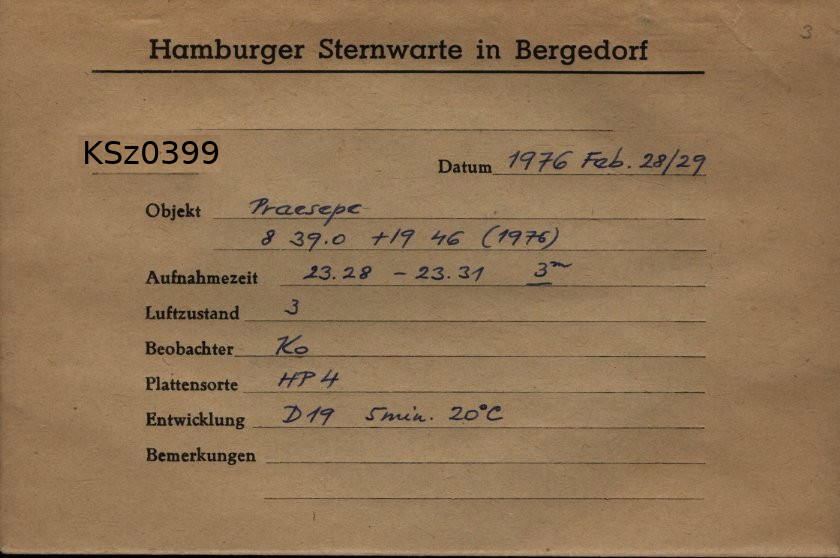 3
Hamburger Sternwarte in Bergedorf
KSz0399
Datum 1976 Feb. 28/29
Objekt Praesepe
8 39.0 +19 46 (1976)
Aufnahmezeit 23.28 – 23.31 3m
Luftzustand 3
Beobachter Ko
Plattensorte HP4
Entwicklung D19 5min. 20°C
Bemerkungen